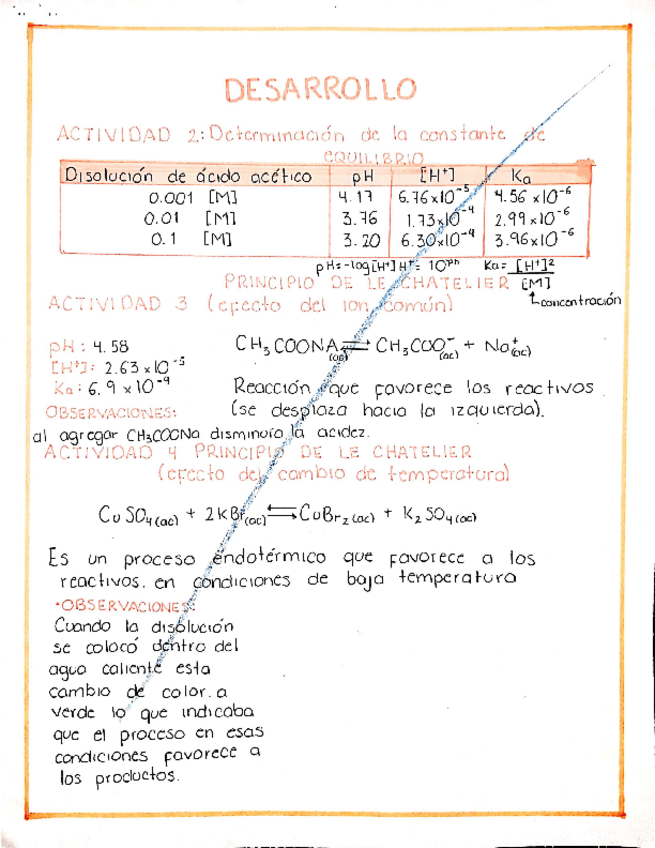 DESARROLLO
ACTIVIDAD 2: Determinación de la constante de
EQUILIBRIO
Disolución de ácido acético pH [H⁺] Ka
0.001 [M] 4.17 6.76x10⁻⁵ 4.56 x10⁻⁶
0.01 [M] 3.76 1.73x10⁻⁴ 2.99 x10⁻⁶
0.1 [M] 3.20 6.30x10⁻⁴ 3.96x10⁻⁶
pH=-log[H⁺] H⁺= 10ᵖʰ Ka= [H⁺]²
PRINCIPIO DE LE CHATELIER [M]
ACTIVIDAD 3 (efecto del ion común) concentración
pH: 4.58 CH₃COONA(ac) ⇌ CH₃COO⁻(ac) + Na⁺(ac)
[H⁺]: 2.63 x10⁻⁵
Ka: 6.9 x10⁻⁹ Reacción que favorece los reactivos.
OBSERVACIONES: (se desplaza hacia la izquierda).
al agregar CH₃COONa disminuía la acidez.
ACTIVIDAD 4 PRINCIPIO DE LE CHATELIER
(efecto del cambio de temperatura)
CuSO₄(ac) + 2KBr(ac) ⇌ CuBr₂(ac) + K₂SO₄(ac)
Es un proceso endotérmico que favorece a los
reactivos. en condiciones de baja temperatura
•OBSERVACIONES:
Cuando la disolución
se colocó dentro del
agua caliente esta
cambio de color. a
verde lo que indicaba
que el proceso en esas
condiciones favorece a
los productos.